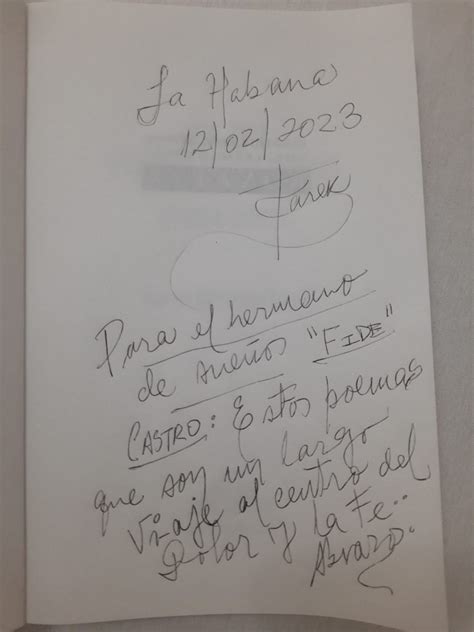 La Habana
12/02/2023
Tarek
Para el hermano
de sueños "FIDE"
CASTRO: Estos poemas
que son un largo
viaje al centro del
Dolor y la Fe..
Abrazo.